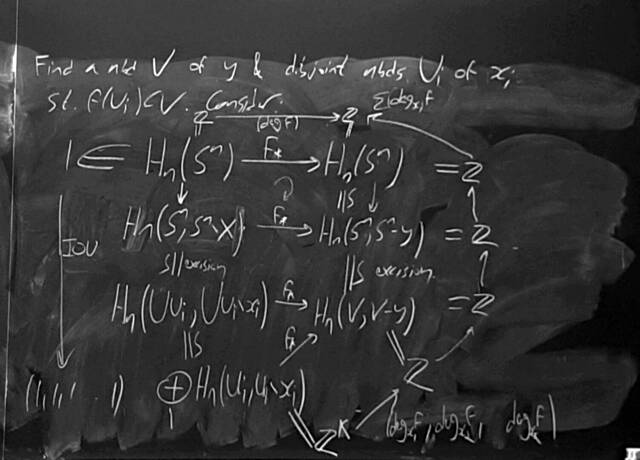 Find a nbd V of y & disjoint nbds Ui of xi
St. f(Ui)⊂V. Consider:
ℤ → (deg f) ℤ Σ deg_xi f
1 ∈ Hn(Sⁿ) f* → Hn(Sⁿ) = ℤ
IOU Hn(Sⁿ, Sⁿ\X) f* → Hn(Sⁿ, Sⁿ-y) = ℤ
S|| excision ||S excision
Hn(UUi, UUi\xi) f* → Hn(V, V-y) = ℤ
||S f* ℤ
(1,1,1, 1) ⊕ Hn(Ui, Ui\xi)
i ℤᵏ (deg_x1 f, deg_x2 f, deg_xk f)